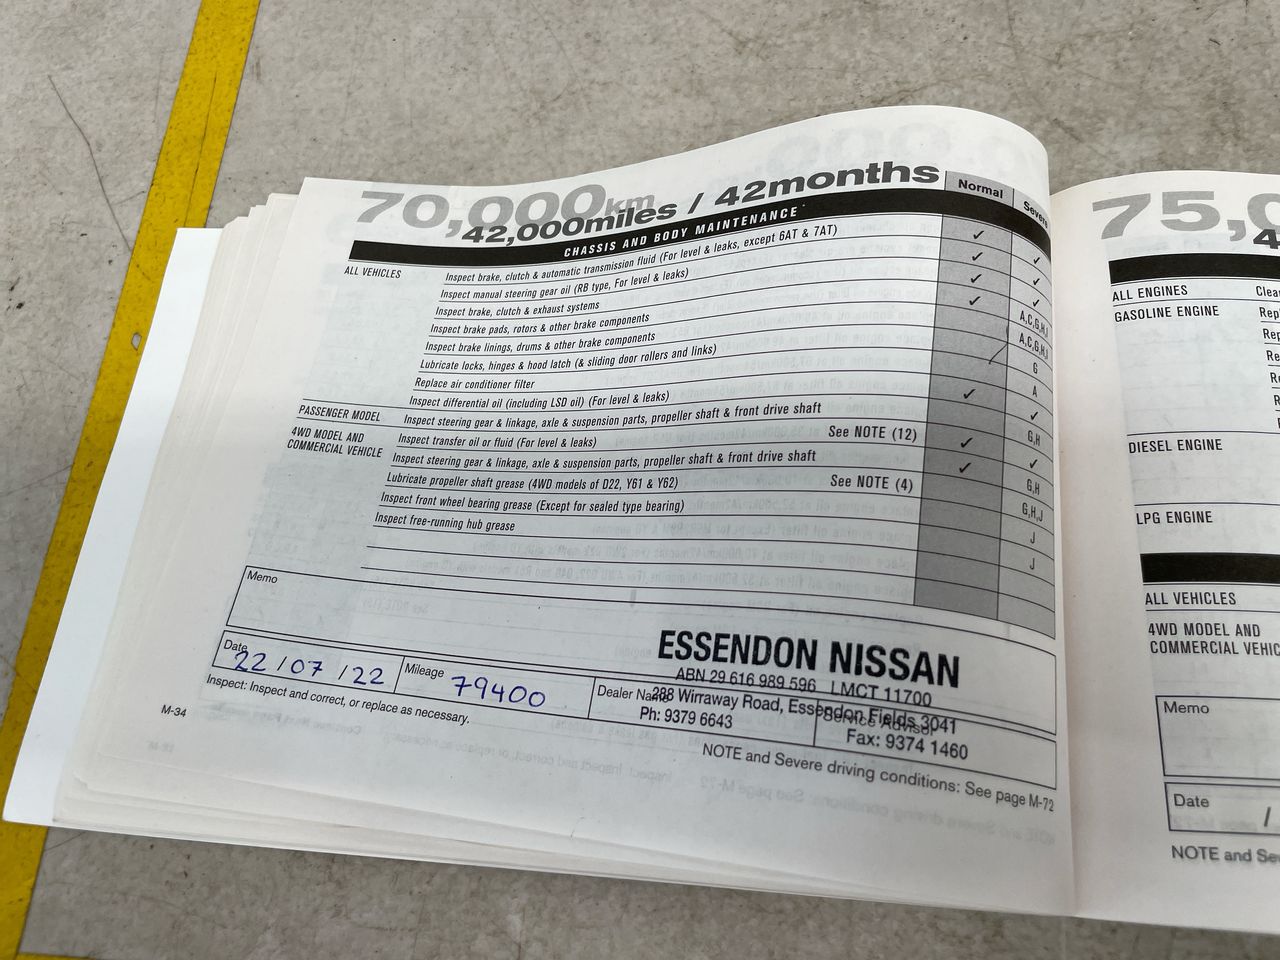 70,000km
42,000miles / 42months
Normal
Severe
CHASSIS AND BODY MAINTENANCE
ALL VEHICLES
Inspect brake, clutch & automatic transmission fluid (For level & leaks, except 6AT & 7AT) ✓ ✓
Inspect manual steering gear oil (RB type, For level & leaks) ✓ ✓
Inspect brake, clutch & exhaust systems ✓ ✓
Inspect brake pads, rotors & other brake components ✓ A,C,G,H,I
Inspect brake linings, drums & other brake components A,C,G,H,I
Lubricate locks, hinges & hood latch (& sliding door rollers and links) G
Replace air conditioner filter A
Inspect differential oil (including LSD oil) (For level & leaks) ✓ ✓
PASSENGER MODEL
Inspect steering gear & linkage, axle & suspension parts, propeller shaft & front drive shaft G,H
4WD MODEL AND
COMMERCIAL VEHICLE
Inspect transfer oil or fluid (For level & leaks) See NOTE (12) ✓ ✓
Inspect steering gear & linkage, axle & suspension parts, propeller shaft & front drive shaft ✓ G,H
Lubricate propeller shaft grease (4WD models of D22, Y61 & Y62) See NOTE (4) G,H,J
Inspect front wheel bearing grease (Except for sealed type bearing) J
Inspect free-running hub grease J
Memo
ESSENDON NISSAN
ABN 29 616 989 596 LMCT 11700
288 Wirraway Road, Essendon Fields 3041
Ph: 9379 6643
Fax: 9374 1460
Date
22 / 07 / 22
Mileage
79400
Dealer Name
Service Advisor
Inspect: Inspect and correct, or replace as necessary.
NOTE and Severe driving conditions: See page M-72
M-34
75,0
4
ALL ENGINES
Clea
GASOLINE ENGINE
Rep
Re
Re
R
R
DIESEL ENGINE
LPG ENGINE
ALL VEHICLES
4WD MODEL AND
COMMERCIAL VEHIC
Memo
Date
/
NOTE and Se